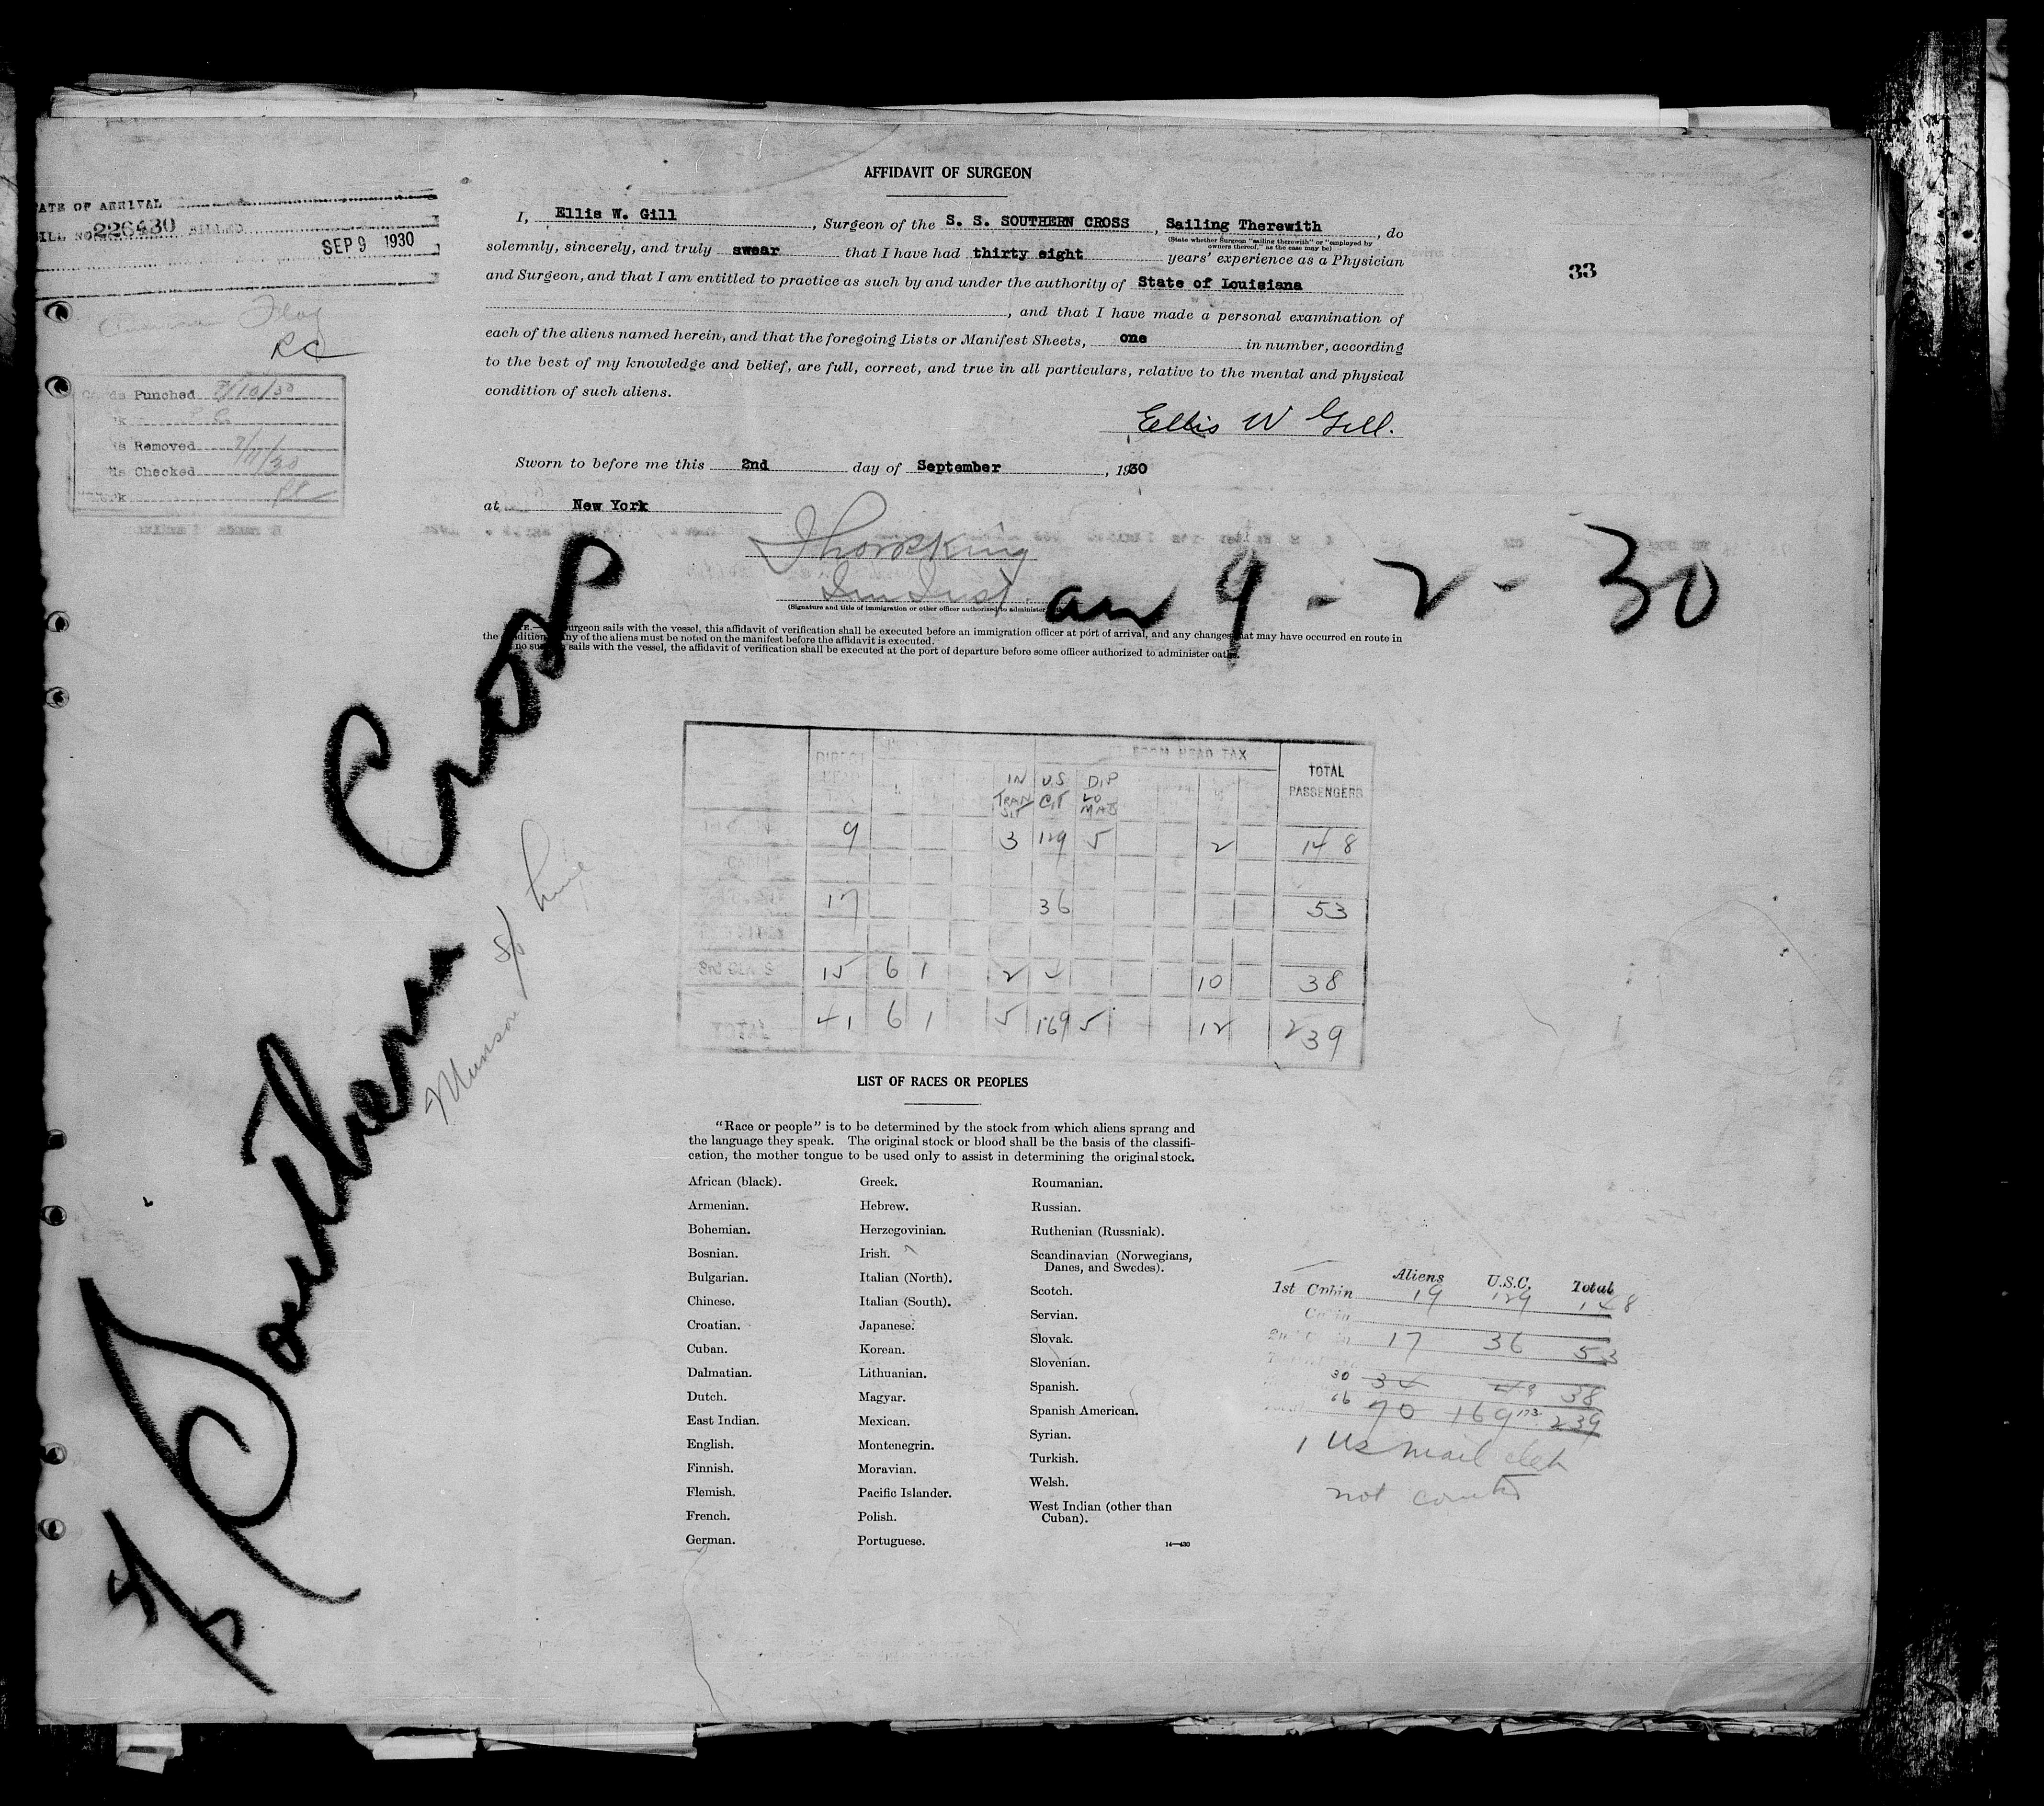 AFFIDAVIT OF SURGEON
I, Ellis W. Gill, Surgeon of the S. S. SOUTHERN CROSS, Sailing Therewith, do
(State whether Surgeon "sailing therewith" or "employed by
owners thereof," as the case may be)
solemnly, sincerely, and truly swear that I have had thirty eight years' experience as a Physician
and Surgeon, and that I am entitled to practice as such by and under the authority of State of Louisiana
, and that I have made a personal examination of
each of the aliens named herein, and that the foregoing Lists or Manifest Sheets, one in number, according
to the best of my knowledge and belief, are full, correct, and true in all particulars, relative to the mental and physical
condition of such aliens.
Ellis W Gill.
Sworn to before me this 2nd day of September, 1930
at New York
(Signature and title of immigration or other officer authorized to administer
arr 9-2-30
surgeon sails with the vessel, this affidavit of verification shall be executed before an immigration officer at port of arrival, and any changes that may have occurred en route in
the condition any of the aliens must be noted on the manifest before the affidavit is executed.
no sails with the vessel, the affidavit of verification shall be executed at the port of departure before some officer authorized to administer oaths.
33
DATE OF ARRIVAL
BILL NO. 226430 BILLED SEP 9 1930
Flag
RC
Cards Punched 9/10/30
Removed 9/11/30
Checked
S/S Southern Cross
Munson S/S Line
DIRECT FROM HEAD TAX TOTAL
PASSENGERS
IN TRANSIT U.S. CIT DIPLOMAS
9 3 129 5 2 148
17 36 53
3rd CLASS 15 6 1 2 10 38
TOTAL 41 6 1 5 169 5 12 239
LIST OF RACES OR PEOPLES
"Race or people" is to be determined by the stock from which aliens sprang and
the language they speak. The original stock or blood shall be the basis of the classifi-
cation, the mother tongue to be used only to assist in determining the original stock.
African (black).
Armenian.
Bohemian.
Bosnian.
Bulgarian.
Chinese.
Croatian.
Cuban.
Dalmatian.
Dutch.
East Indian.
English.
Finnish.
Flemish.
French.
German.
Greek.
Hebrew.
Herzegovinian.
Irish.
Italian (North).
Italian (South).
Japanese.
Korean.
Lithuanian.
Magyar.
Mexican.
Montenegrin.
Moravian.
Pacific Islander.
Polish.
Portuguese.
Roumanian.
Russian.
Ruthenian (Russniak).
Scandinavian (Norwegians,
Danes, and Swedes).
Scotch.
Servian.
Slovak.
Slovenian.
Spanish.
Spanish American.
Syrian.
Turkish.
Welsh.
West Indian (other than
Cuban).
14—430
Aliens U.S.C. Total
1st Cabin 19 129 148
Cabin
2nd Cabin 17 36 53
30 34 38
66 70 169 173 239
1 US mail clerk
not counted